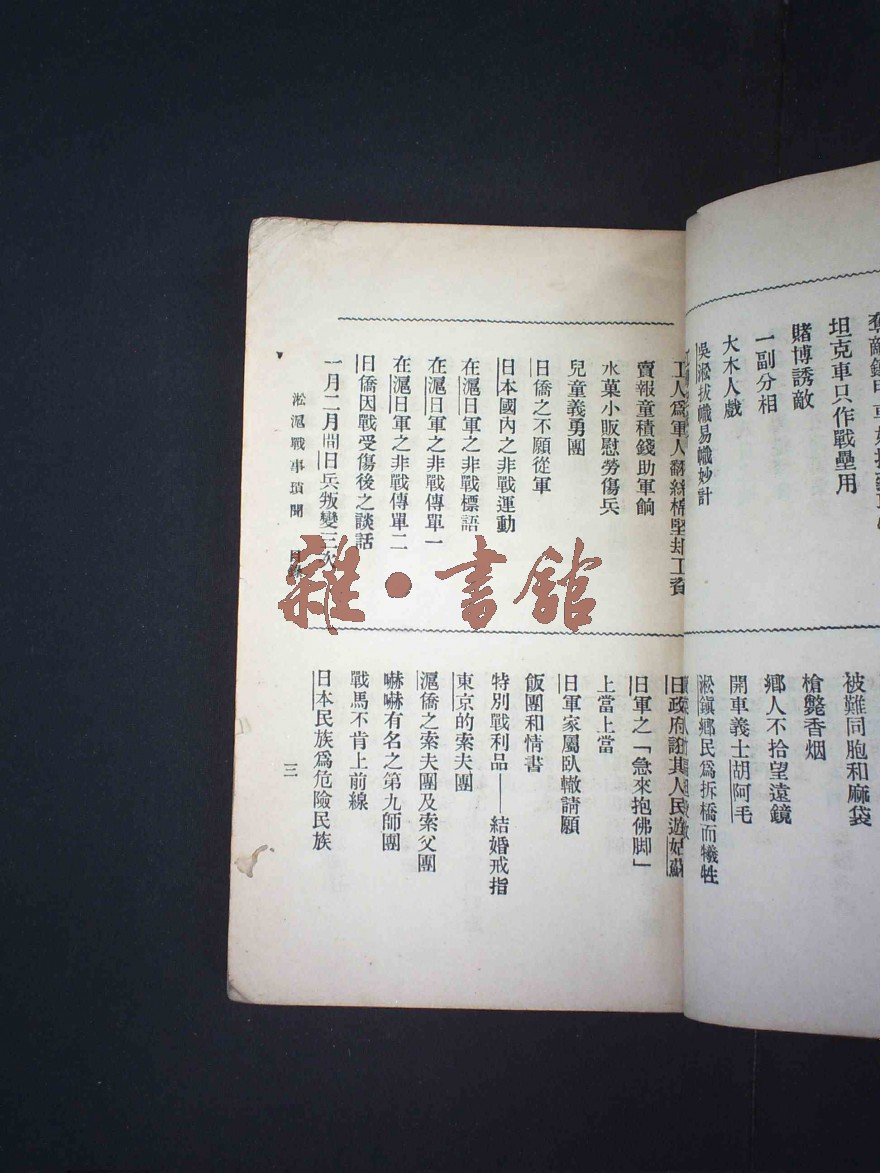 坦克車只作戰壘用
賭博誘敵
一副分相
大木人戲
吳淞拔幟易幟妙計
被難同胞和麻袋
槍斃香烟
鄉人不拾望遠鏡
開車義士胡阿毛
淞鎮鄉民爲拆橋而犧牲
工人爲軍人翻絲棉堅却工資
賣報童積錢助軍餉
水菓小販慰勞傷兵
兒童義勇團
日僑之不願從軍
日本國內之非戰運動
在滬日軍之非戰標語
在滬日軍之非戰傳單一
在滬日軍之非戰傳單二
日僑因戰受傷後之談話
一月二月間日兵叛變三次
日政府誑其人民遊姑蘇
日軍之「急來抱佛脚」
上當上當
日軍家屬臥轍請願
飯團和情書
特別戰利品——結婚戒指
東京的索夫團
滬僑之索夫團及索父團
嚇嚇有名之第九師團
戰馬不肯上前線
日本民族爲危險民族
淞滬戰事瑣聞 目錄
三
雜·書館